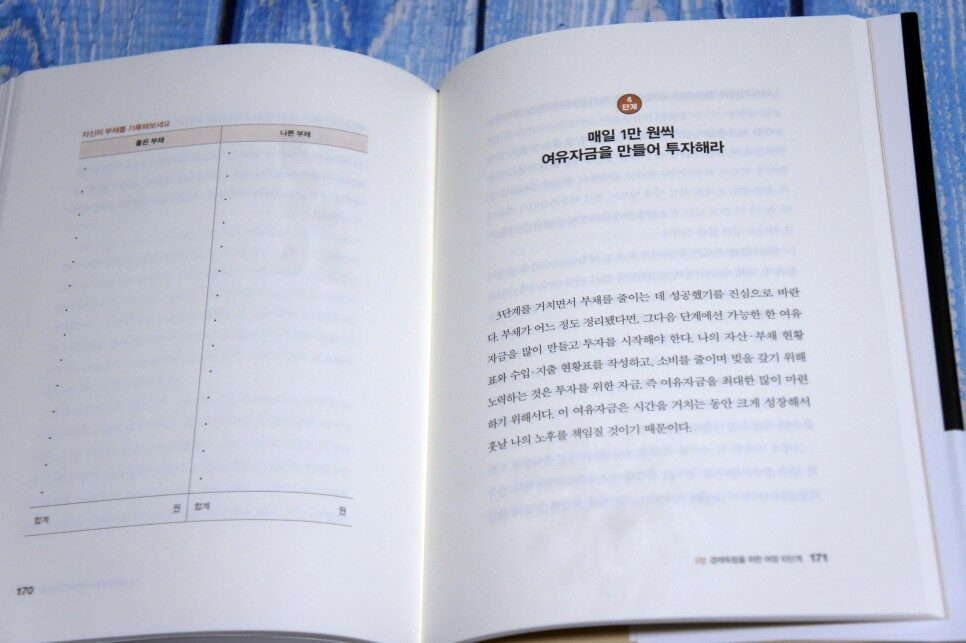 자신의 부채를 기록해보세요
좋은 부채
나쁜 부채
합계 원
합계 원
170
4
단계
매일 1만 원씩
여유자금을 만들어 투자해라
3단계를 거치면서 부채를 줄이는 데 성공했기를 진심으로 바란
다. 부채가 어느 정도 정리됐다면, 그다음 단계에선 가능한 한 여유
자금을 많이 만들고 투자를 시작해야 한다. 나의 자산·부채 현황
표와 수입·지출 현황표를 작성하고, 소비를 줄이며 빚을 갚기 위해
노력하는 것은 투자를 위한 자금, 즉 여유자금을 최대한 많이 마련
하기 위해서다. 이 여유자금은 시간을 거치는 동안 크게 성장해서
훗날 나의 노후를 책임질 것이기 때문이다.
3장 경제독립을 위한 여정 10단계 171